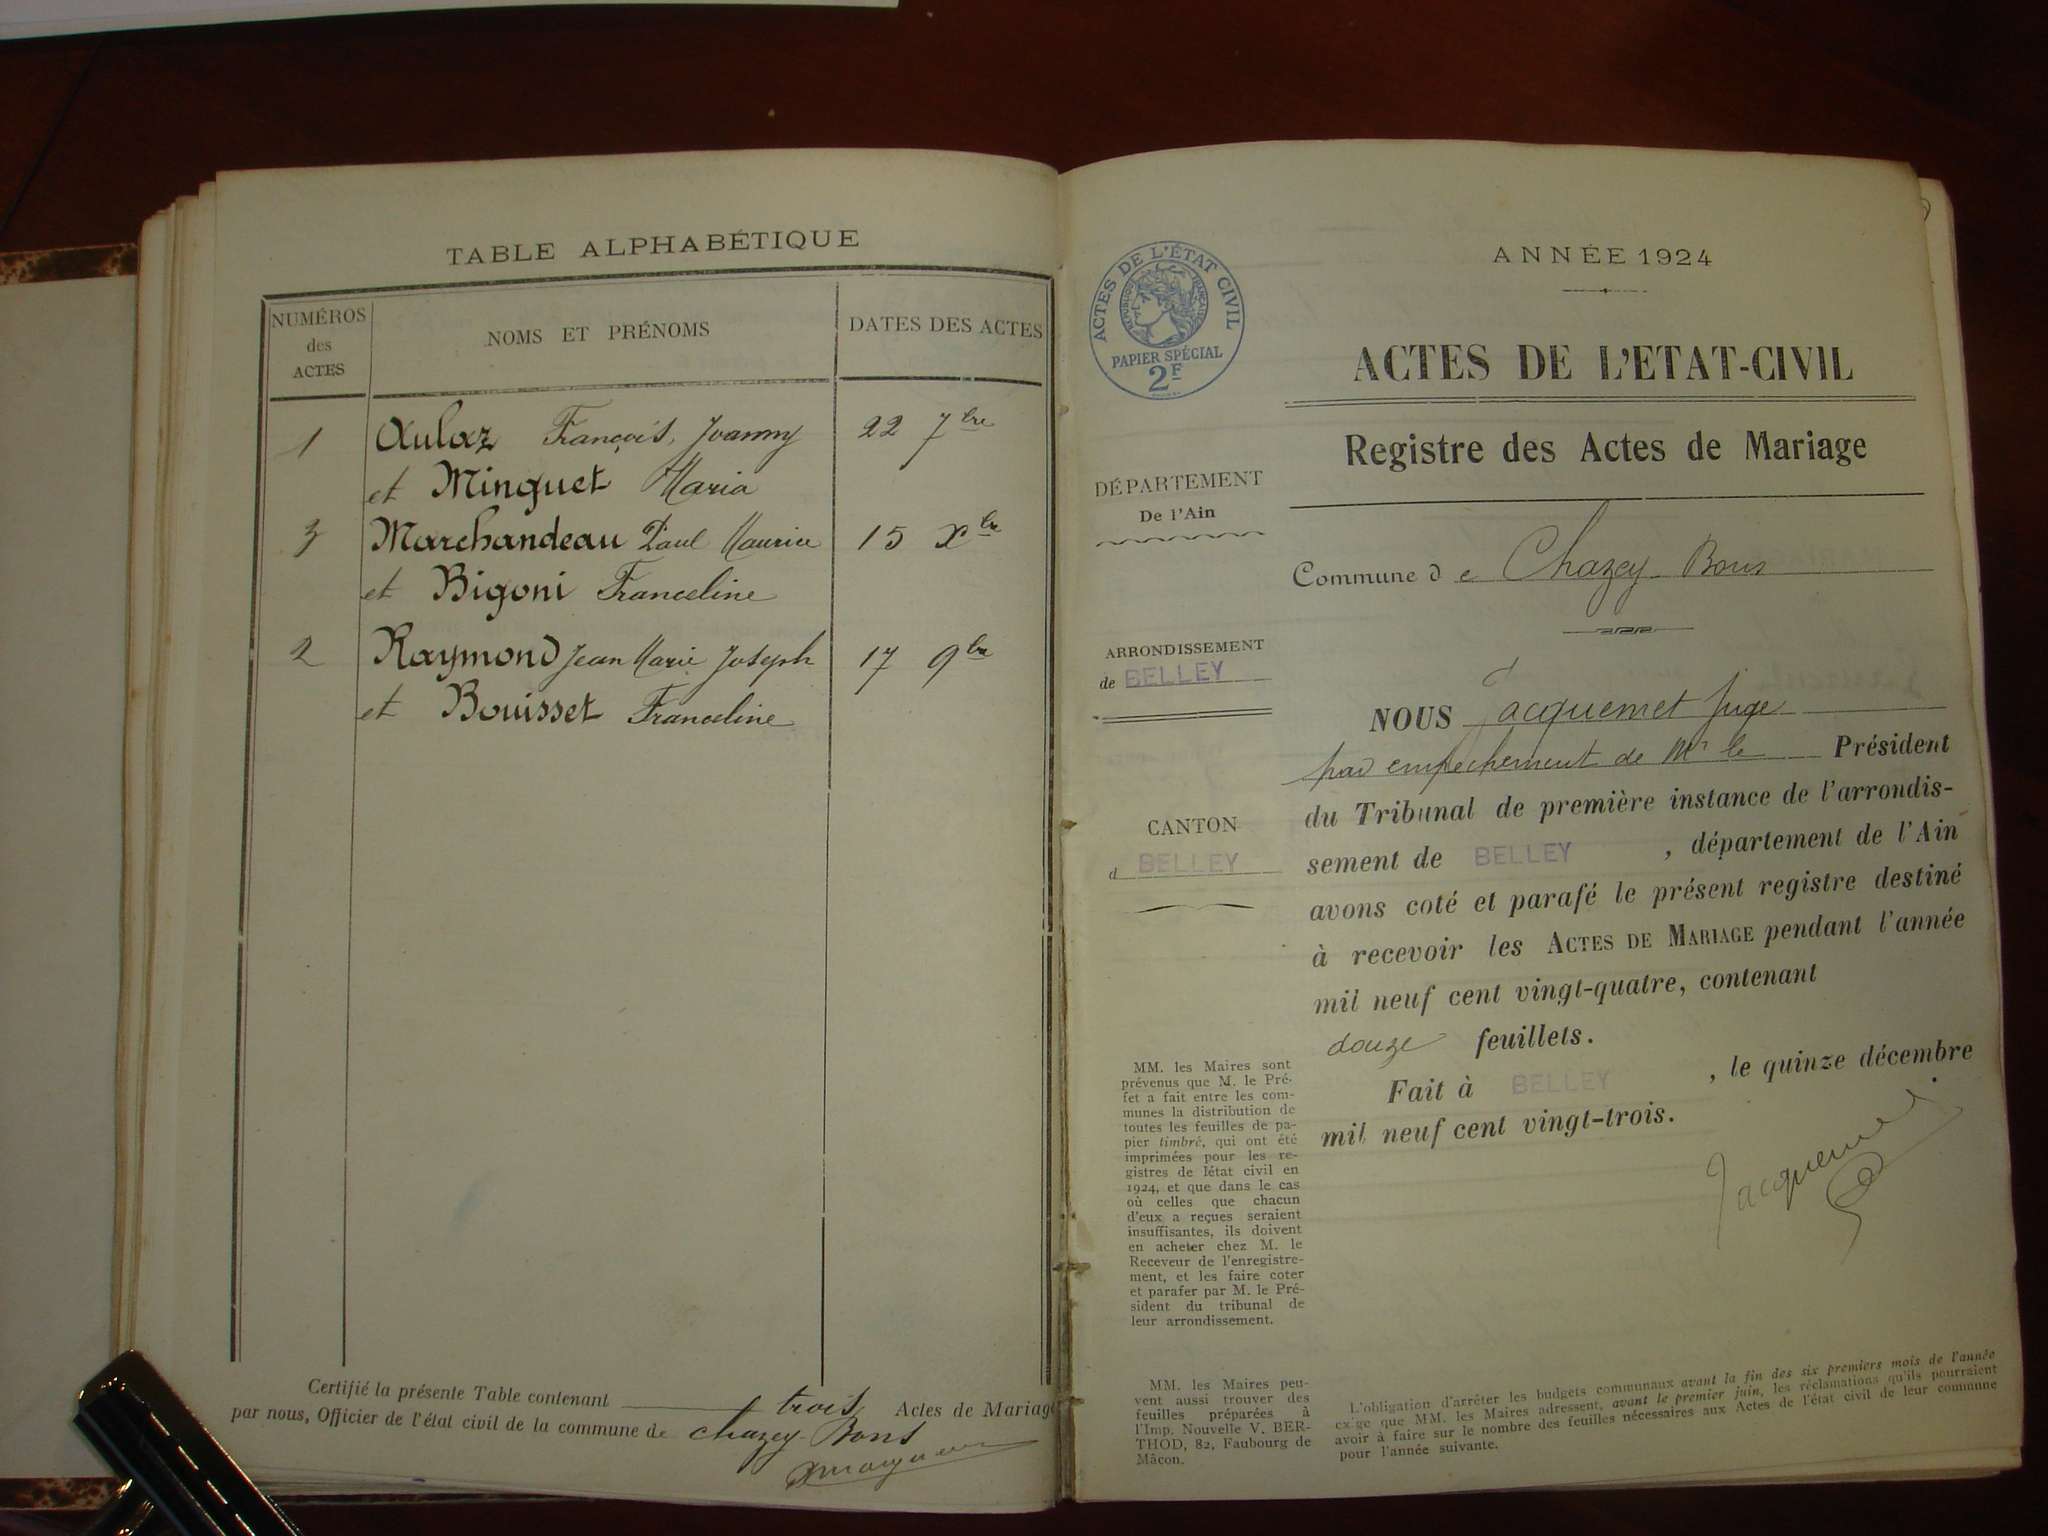 TABLE ALPHABÉTIQUE
NUMÉROS
des
ACTES
NOMS ET PRÉNOMS
DATES DES ACTES
1 Aulaz François, Joanny 22 7bre
et Minguet Maria
3 Marchandeau Paul Maurice 15 Xbre
et Bigoni Franceline
2 Raymond Jean Marie Joseph 17 9bre
et Bouisset Franceline
Certifié la présente Table contenant trois Actes de Mariage
par nous, Officier de l'état civil de la commune de Chazey-Bons
ANNÉE 1924
ACTES DE L'ÉTAT CIVIL
RÉPUBLIQUE FRANÇAISE
PAPIER SPÉCIAL
2F
ACTES DE L'ETAT-CIVIL
Registre des Actes de Mariage
DÉPARTEMENT
De l'Ain
Commune de Chazey-Bons
ARRONDISSEMENT
de BELLEY
CANTON
d BELLEY
NOUS Jacquemet Juge
par empechement de Mr le Président
du Tribunal de première instance de l'arrondis-
sement de BELLEY, département de l'Ain
avons coté et parafé le présent registre destiné
à recevoir les ACTES DE MARIAGE pendant l'année
mil neuf cent vingt-quatre, contenant
douze feuillets.
Fait à BELLEY, le quinze décembre
mil neuf cent vingt-trois.
Jacquemet
MM. les Maires sont
prévenus que M. le Pré-
fet a fait entre les com-
munes la distribution de
toutes les feuilles de pa-
pier timbré, qui ont été
imprimées pour les re-
gistres de létat civil en
1924, et que dans le cas
où celles que chacun
d'eux a reçues seraient
insuffisantes, ils doivent
en acheter chez M. le
Receveur de l'enregistre-
ment, et les faire coter
et parafer par M. le Pré-
sident du tribunal de
leur arrondissement.
MM. les Maires peu-
vent aussi trouver des
feuilles préparées à
l'Imp. Nouvelle V. BER-
THOD, 82, Faubourg de
Mâcon.
L'obligation d'arrêter les budgets communaux avant la fin des six premiers mois de l'année
exige que MM. les Maires adressent, avant le premier juin, les réclamations qu'ils pourraient
avoir à faire sur le nombre des feuilles nécessaires aux Actes de l'état civil de leur commune
pour l'année suivante.